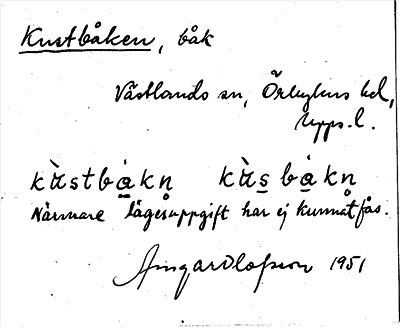 Kustbåken, båk
Västlands sn, Örbyhus hd,
Upps. l.
kùstbå̀kn kùsbå̀kn
Närmare lägesuppgift har ej kunnat fås.
Ingar Olofsson 1951